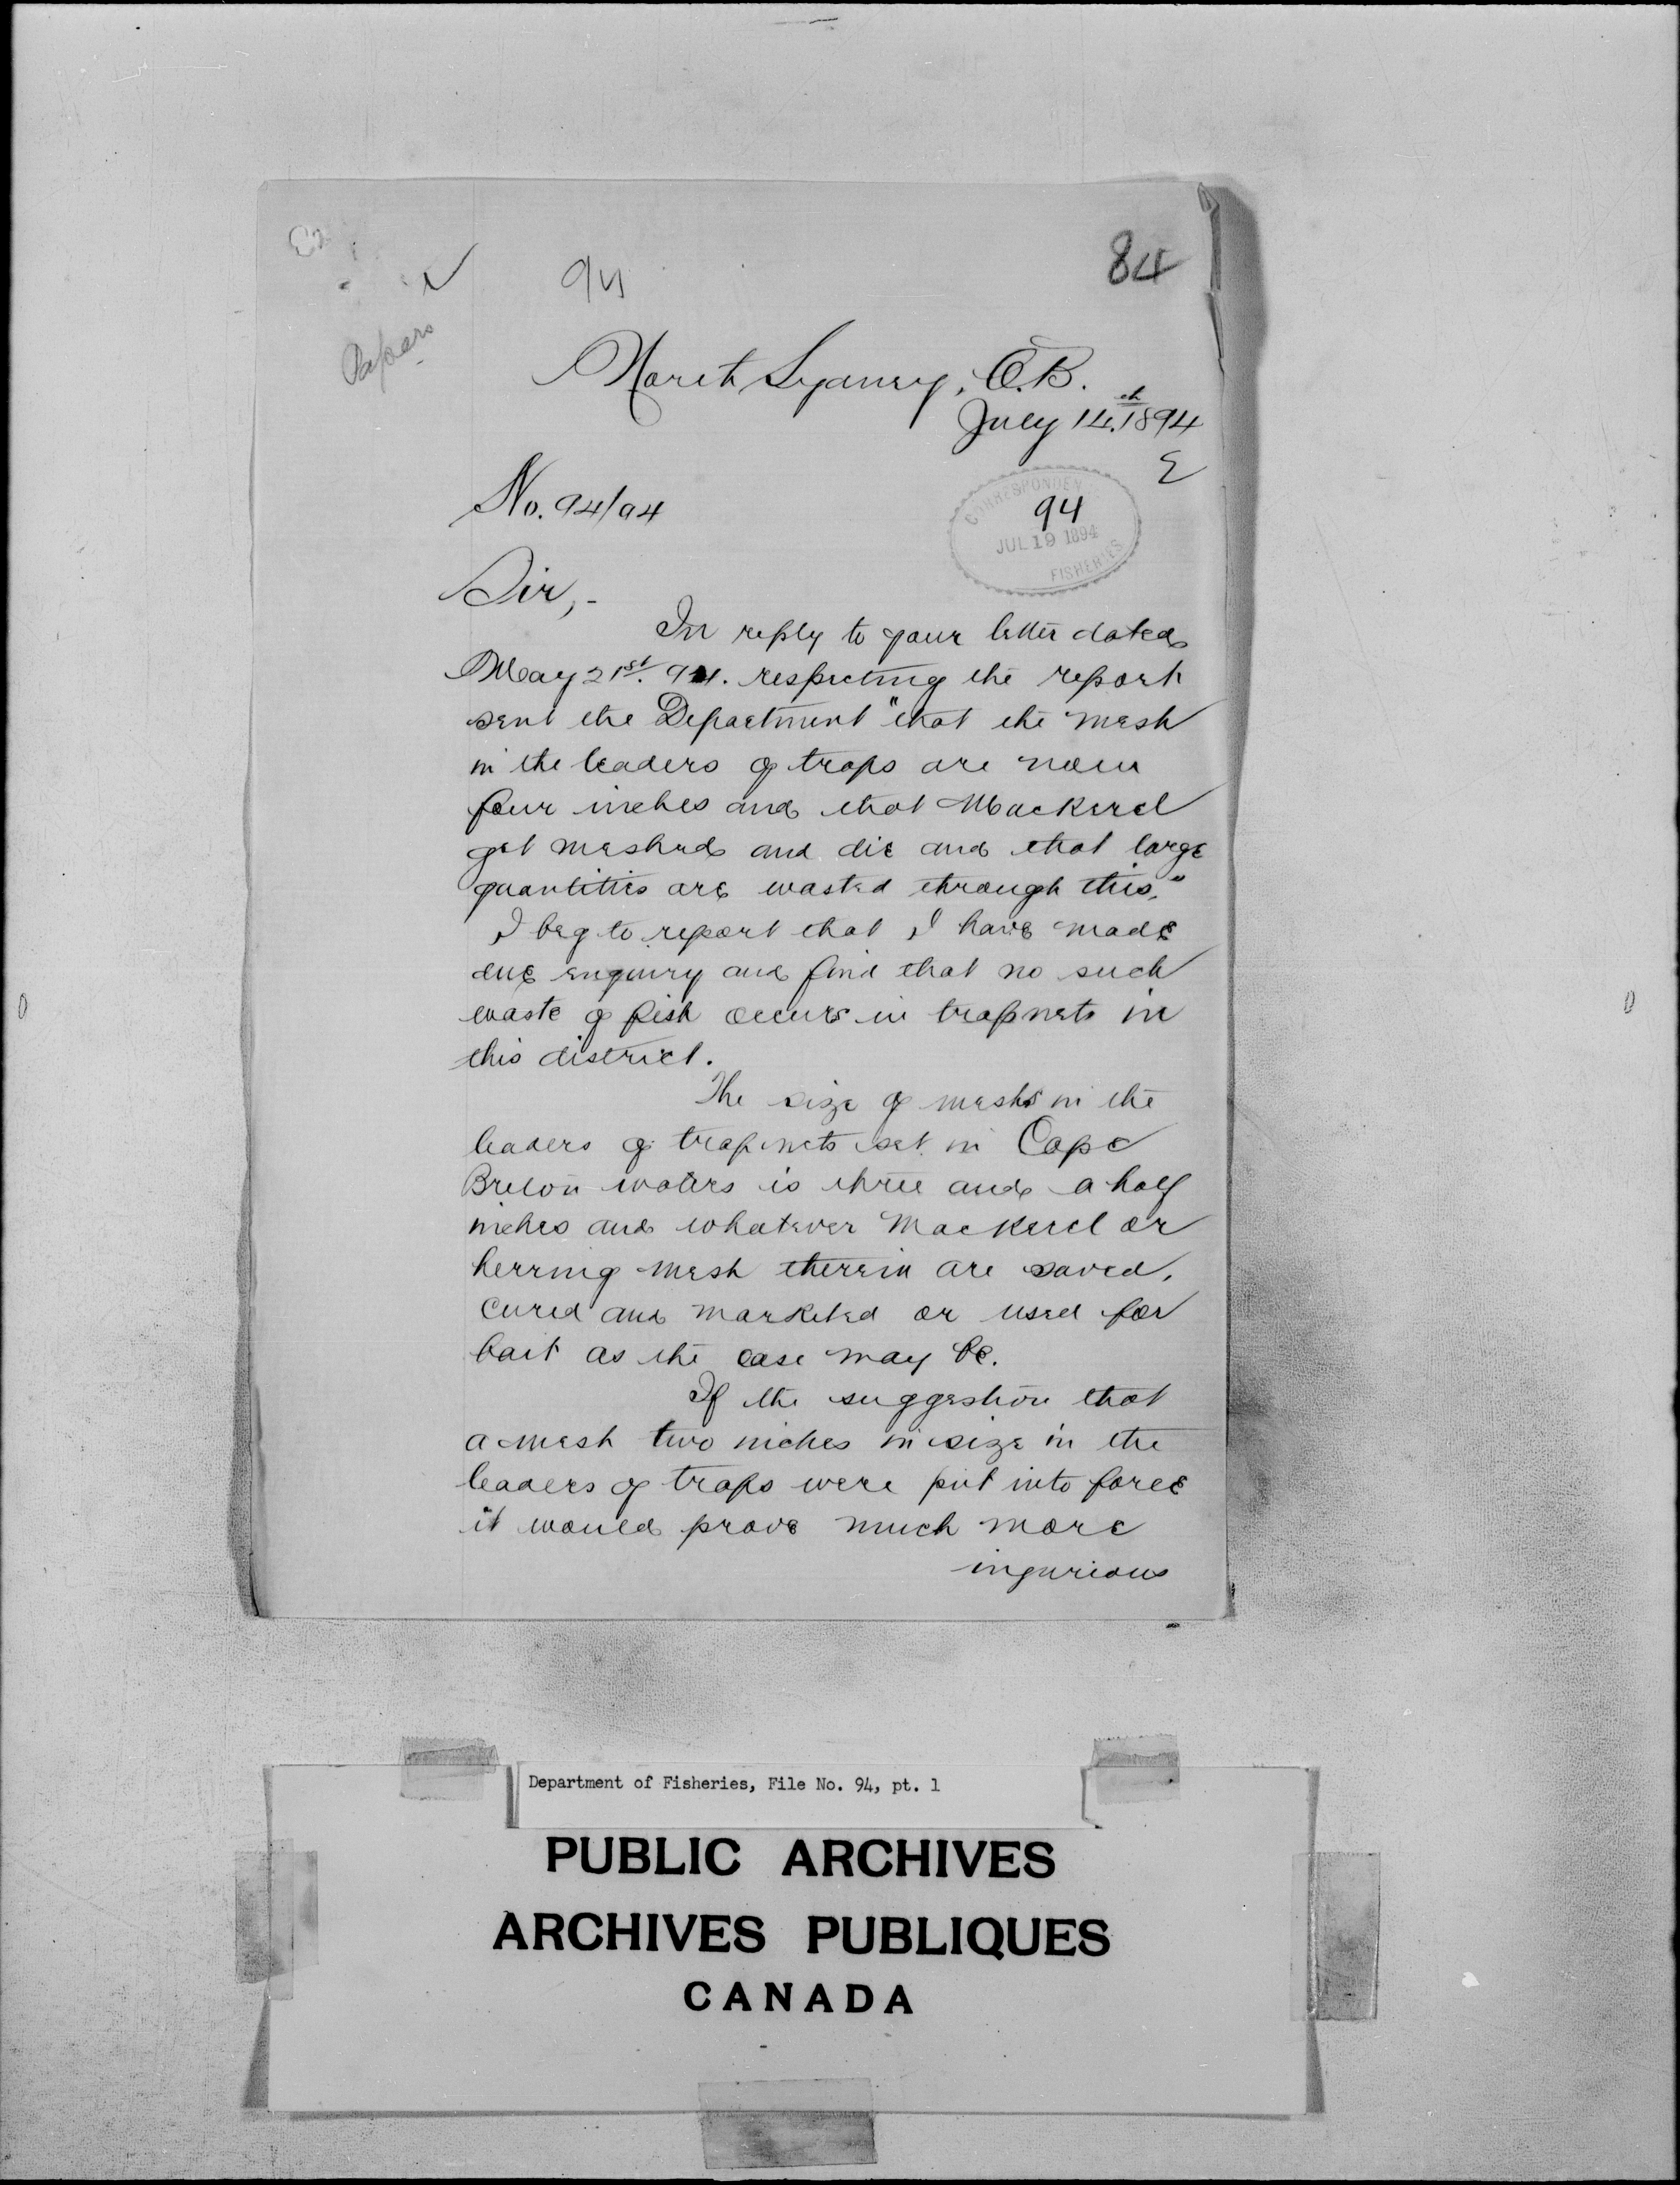 94
84
Papers
North Sydney, C.B.
July 14th 1894
E
No. 94/94
CORRESPONDEN
94
JUL 19 1894
FISHERIES
Sir,-
In reply to your letter dated
May 21st. 94. respecting the report
sent the Department "that the mesh
in the leaders of traps are now
four inches and that Mackerel
get meshed and die and that large
quantities are wasted through this."
I beg to report that I have made
due enquiry and find that no such
waste of fish occurs in trapnets in
this district.
The size of mesh in the
leaders of trapnets set in Cape
Breton waters is three and a half
inches and whatever Mackerel or
herring mesh therein are saved,
cured and marketed or used for
bait as the case may be.
If the suggestion that
a mesh two inches in size in the
leaders of traps were put into force
it would prove much more
injurious
Department of Fisheries, File No. 94, pt. 1
PUBLIC ARCHIVES
ARCHIVES PUBLIQUES
CANADA